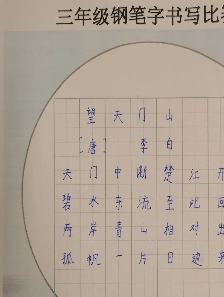 三年级钢笔字书写比
望天门山
[唐] 李白
天门中断楚江开
碧水东流至此回
两岸青山相对出
孤帆一片日边